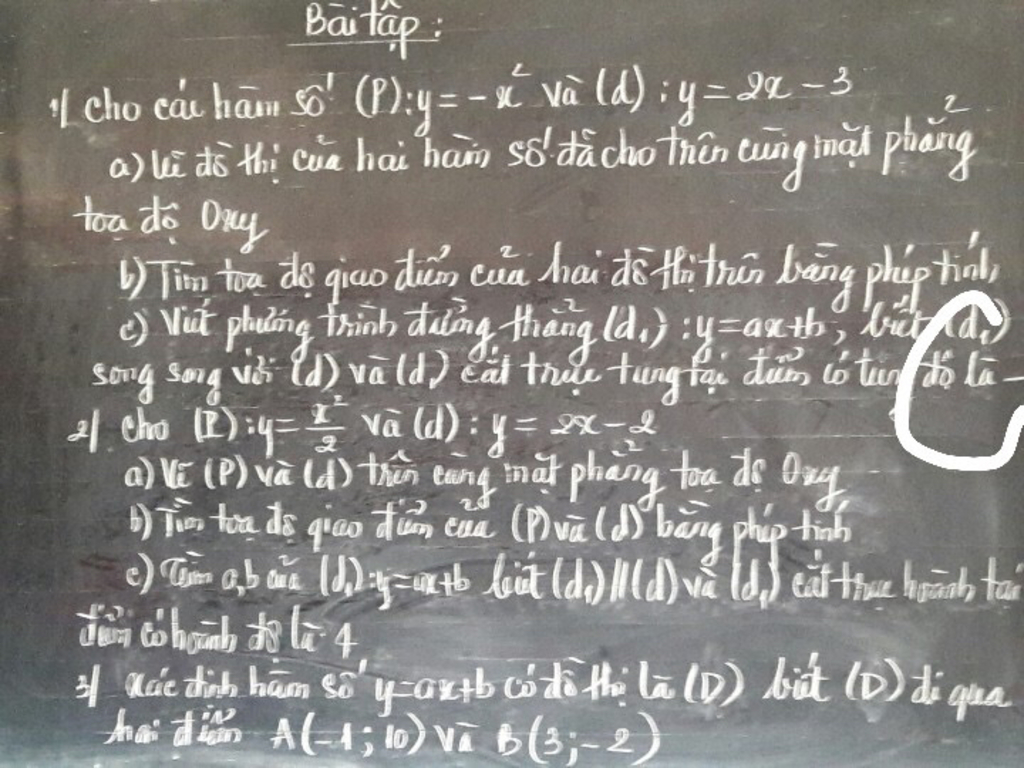 Bài tập:
1/ Cho các hàm số (P): y = -x² và (d): y = 2x - 3
a) Vẽ đồ thị của hai hàm số đã cho trên cùng mặt phẳng
toạ độ Oxy
b) Tìm toạ độ giao điểm của hai đồ thị trên bằng phép tính
c) Viết phương trình đường thẳng (d₁): y = ax+b, biết (d₁)
song song với (d) và (d₁) cắt trục tung tại điểm có tung độ là -
2/ Cho (P): y = x²/2 và (d): y = 2x - 2
a) Vẽ (P) và (d) trên cùng mặt phẳng toạ độ Oxy
b) Tìm toạ độ giao điểm của (P) và (d) bằng phép tính
c) Tìm a, b của (d₁): y = ax+b biết (d₁) // (d) và (d₁) cắt trục hoành tại
điểm có hoành độ là 4
3/ Xác định hàm số y = ax+b có đồ thị là (D) biết (D) đi qua
hai điểm A(-1; 10) và B(3; -2)